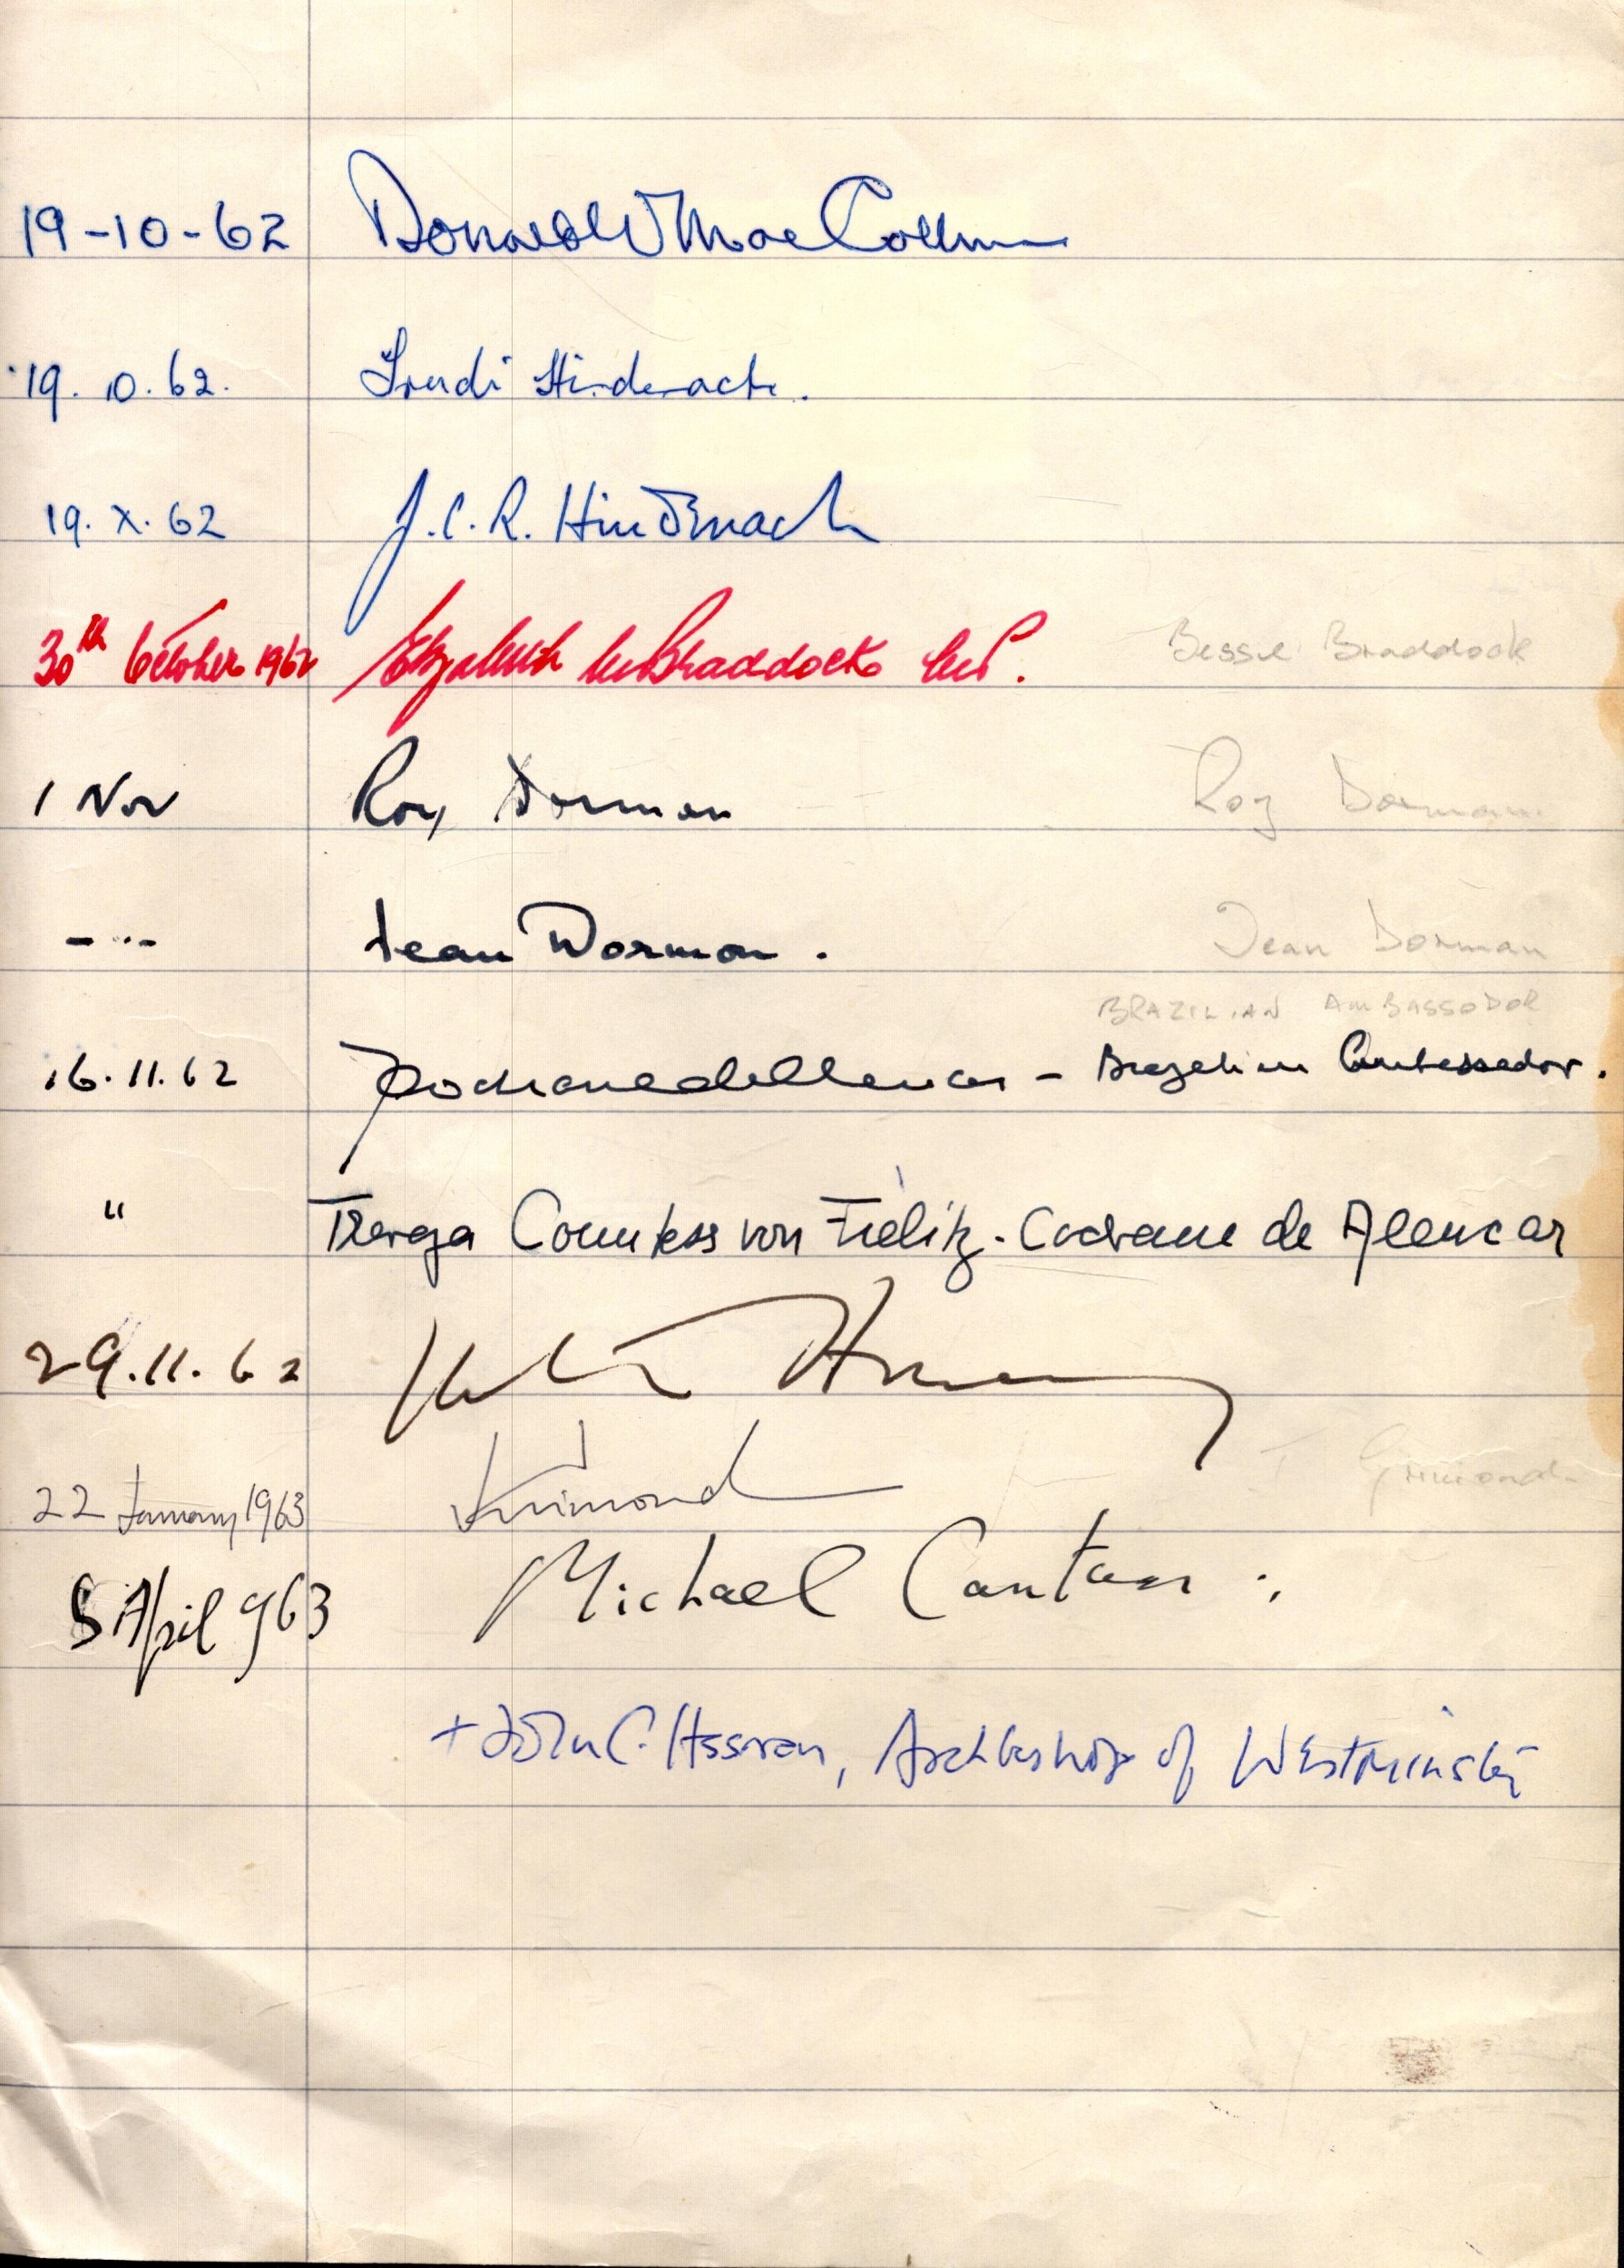 19-10-62 Donald W Mac
19.10.62. Trudi Hindenach.
19.X.62 J.C.R. Hindenach
30th October 1962 Elizabeth M Braddock M.P. Bessie Braddock
1 Nov Roy Dorman Roy Dorman
- " - Jean Dorman. Jean Dorman
BRAZILIAN AMBASSODOR
16.11.62 - Brazilian Ambassador.
" Countess von Fielitz-Cochrane de Alencar
29.11.62
22 January 1963 J Grimond J Grimond
5 April 963 Michael Cantuar:
+ John C. Heenan, Archbishop of Westminster